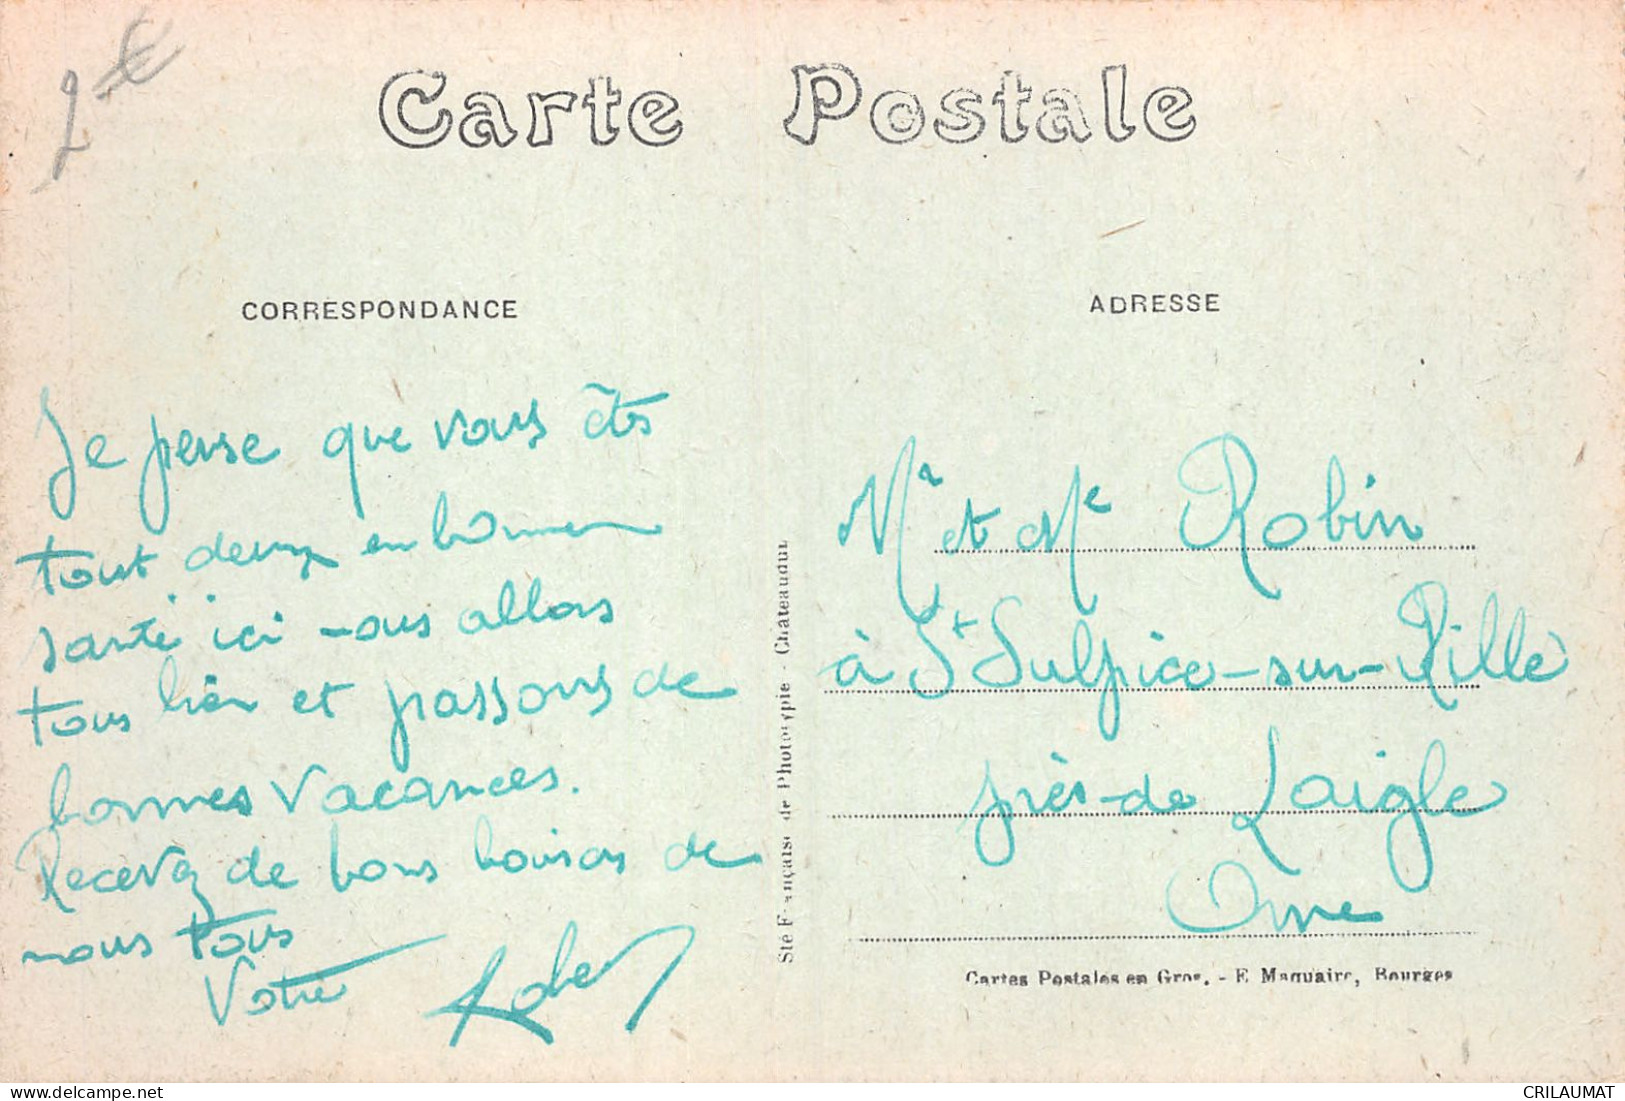 2€
Carte Postale
CORRESPONDANCE
Je pense que vous êts
tout deux en bonne
santé ici nous allons
tous bien et passons de
bonnes vacances.
Recevez de bons baisers de
nous tous
Votre Robert
Sté Française de Phototypie - Chateaudun
ADRESSE
Mr et Me Robin
à St Sulpice-sur-Rille
près-de Laigle
Orne
Cartes Postales en Gros. - E. Maquaire, Bourges
CRILAUMAT